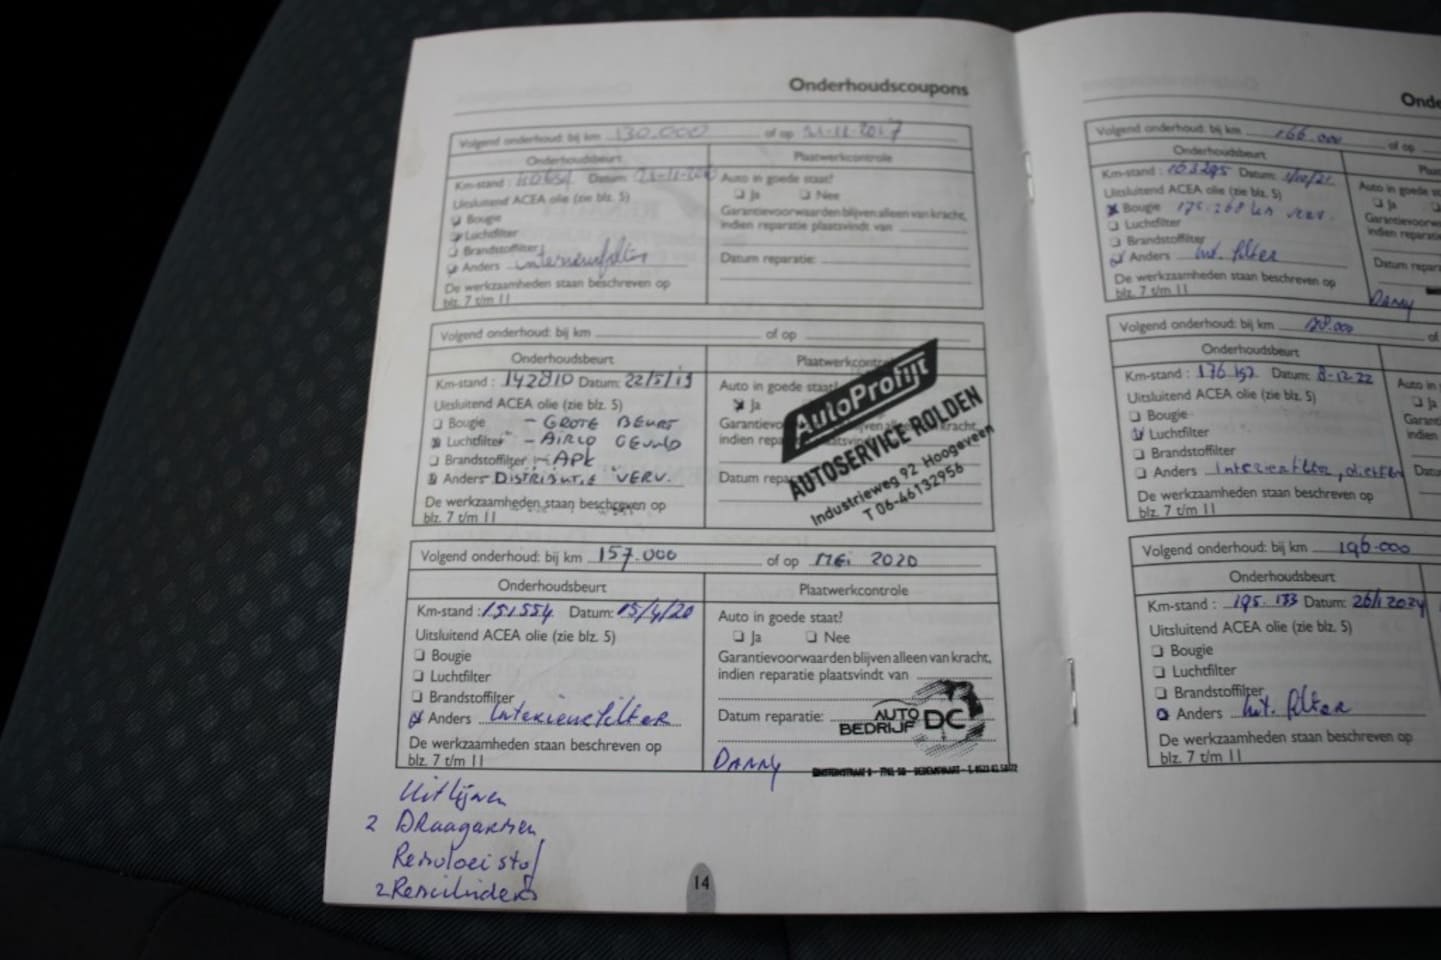 Onderhoudscoupons
Volgend onderhoud: bij km 130.000 of op 21-11-2017
Onderhoudsbeurt Plaatwerkcontrole
Km-stand : Datum:
Auto in goede staat?
Uitsluitend ACEA olie (zie blz. 5)
Ja Nee
Bougie
Garantievoorwaarden blijven alleen van kracht,
Luchtfilter
indien reparatie plaatsvindt van
Brandstoffilter
Anders interieurfilter
Datum reparatie:
De werkzaamheden staan beschreven op
blz. 7 t/m 11
Volgend onderhoud: bij km of op
Onderhoudsbeurt Plaatwerkcontrole
Km-stand : 142810 Datum: 22/5/19
Auto in goede staat?
Uitsluitend ACEA olie (zie blz. 5)
Ja
Bougie - GROTE BEURT
Luchtfilter - AIRCO GEVULD
Brandstoffilter - APK
Anders - DISTRIBUTIE VERV.
Datum
De werkzaamheden staan beschreven op
blz. 7 t/m 11
AutoProfijt
AUTOSERVICE ROLDEN
Industrieweg 92 Hoogeveen
T 06-46132956
Volgend onderhoud: bij km 157.000 of op MEI 2020
Onderhoudsbeurt Plaatwerkcontrole
Km-stand : 151554 Datum: 15/4/20
Auto in goede staat?
Uitsluitend ACEA olie (zie blz. 5)
Ja Nee
Bougie
Garantievoorwaarden blijven alleen van kracht,
Luchtfilter
indien reparatie plaatsvindt van
Brandstoffilter
Anders Interieurfilter
Datum reparatie:
AUTO BEDRIJF DC
De werkzaamheden staan beschreven op
blz. 7 t/m 11
DANNY
Uitlijnen
2 DRaagarmen
Remvloeistof
2 Remcilinders
14
Onde
Volgend onderhoud: bij km 166.000 of op
Onderhoudsbeurt
Km-stand : 163295 Datum:
Uitsluitend ACEA olie (zie blz. 5)
Bougie
Luchtfilter
Brandstoffilter
Anders Int. filter
De werkzaamheden staan beschreven op
blz. 7 t/m 11
DANNY
Volgend onderhoud: bij km
Onderhoudsbeurt
Km-stand : 176.152 Datum: 8-12-22
Uitsluitend ACEA olie (zie blz. 5)
Bougie
Luchtfilter
Brandstoffilter
Anders Interieurfilter,
De werkzaamheden staan beschreven op
blz. 7 t/m 11
Volgend onderhoud: bij km 196.000
Onderhoudsbeurt
Km-stand : 195.133 Datum: 26/1 2024
Uitsluitend ACEA olie (zie blz. 5)
Bougie
Luchtfilter
Brandstoffilter
Anders Int. filter
De werkzaamheden staan beschreven op
blz. 7 t/m 11